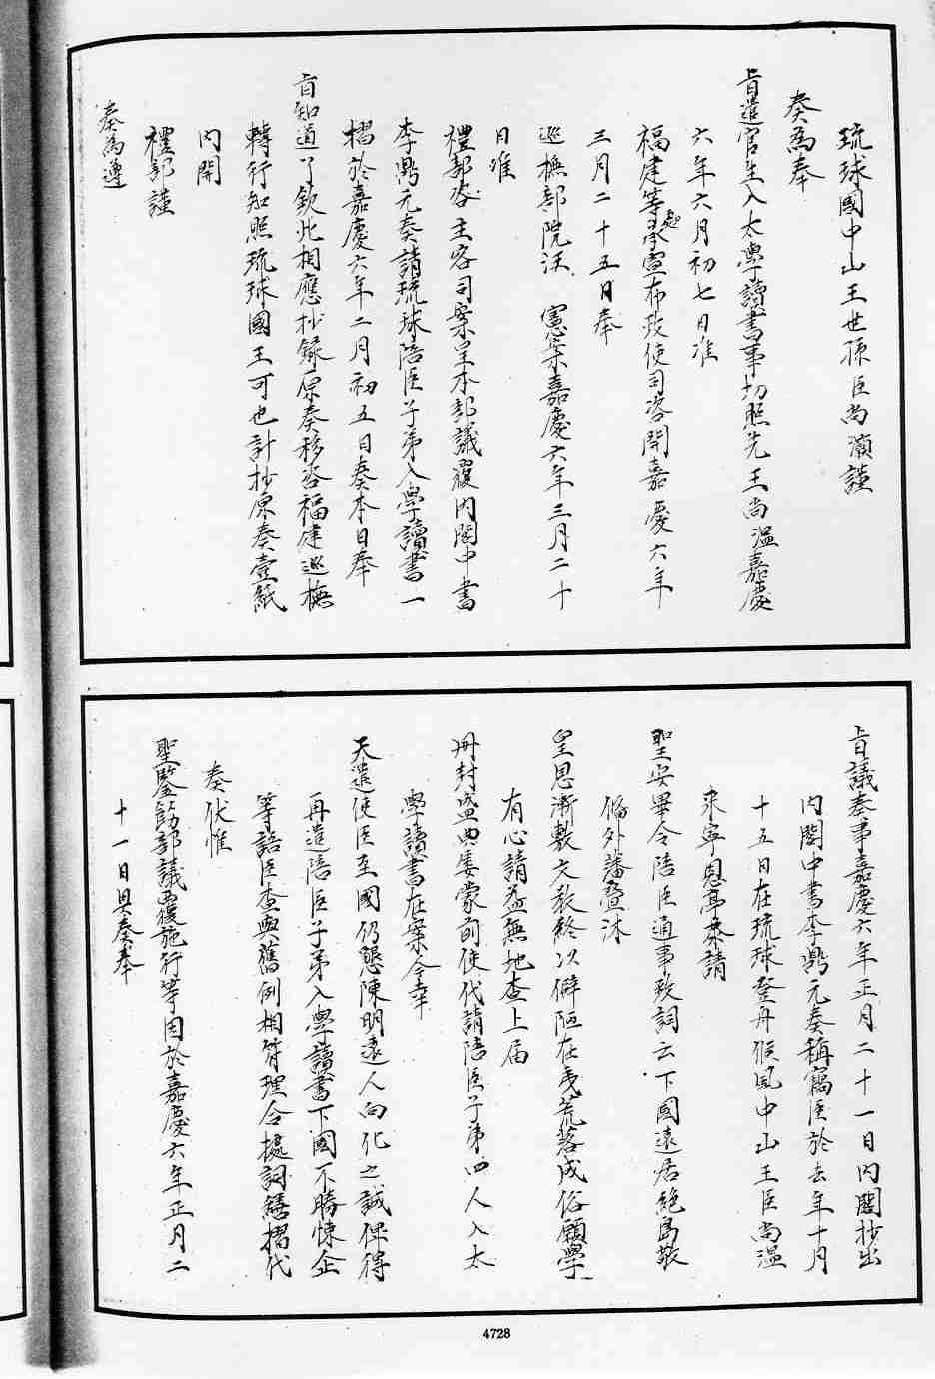 琉球國中山王世孫臣尚灝謹
奏為奉
旨遣官生入太學讀書事切照先王尚溫嘉慶
六年六月初七日准
福建等處承宣布政使司咨開嘉慶六年
三月二十五日奉
巡撫部院汪 憲案嘉慶六年三月二十
日准
禮部咨主客司案呈本部議覆内閣中書
李鼎元奏請琉球陪臣子弟入學讀書一
摺於嘉慶六年二月初五日奏本日奉
旨知道了欽此相應抄錄原奏移咨福建巡撫
轉行知照琉球國王可也計抄原奏壹紙
内開
禮部謹
奏為遵
旨議奏事嘉慶六年正月二十一日内閣抄出
内閣中書李鼎元奏稱竊臣於去年十月
十五日在琉球登舟候風中山王臣尚溫
來寧恩亭恭請
聖安畢令陪臣通事致詞云下國遠居絶島敬
偹外藩疊沐
皇恩漸敷文教終以僻陋在夷荒落成俗願學
有心請益無地查上届
冊封盛典屡蒙前使代請陪臣子弟四人入太
學讀書在案今幸
天遣使臣至國仍懇陳明遠人向化之誠俾得
再遣陪臣子弟入學讀書下國不勝悚企
等語臣查與舊例相符理合據詞繕摺代
奏伏惟
聖鑒飭部議覆施行等因於嘉慶六年正月二
十一日具奏奉
4728